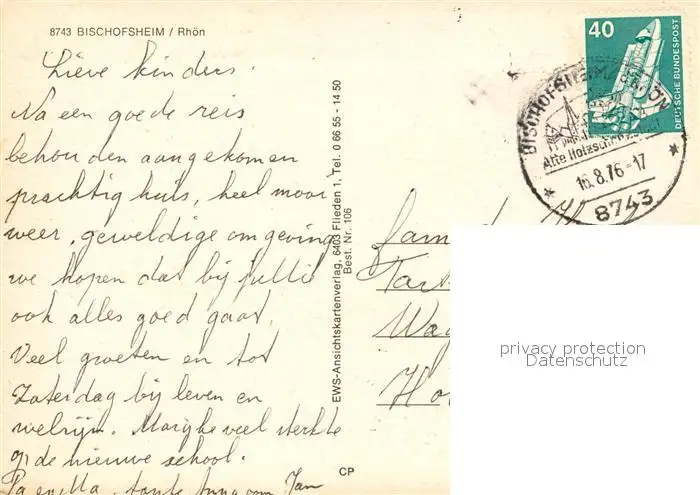 8743 BISCHOFSHEIM / Rhön
Lieve kinders.
Na een goede reis
behouden aangekomen
prachtig huis, heel mooi
weer, geweldige omgeving
we hopen dat bij jullie
ook alles goed gaat.
Veel groeten en tot
Zaterdag bij leven en
welzijn. Marijke veel sterkte
op de nieuwe school.
Pa en Ma, tante Anna oom Jan
EWS-Ansichtskartenverlag, 6403 Flieden 1, Tel. 0 66 55 - 14 50
Best. Nr. 106
CP
40
DEUTSCHE BUNDESPOST
BISCHOFSHEIM RHÖN
Alte
16.8.76-17
8743
Fam
privacy protection
Datenschutz